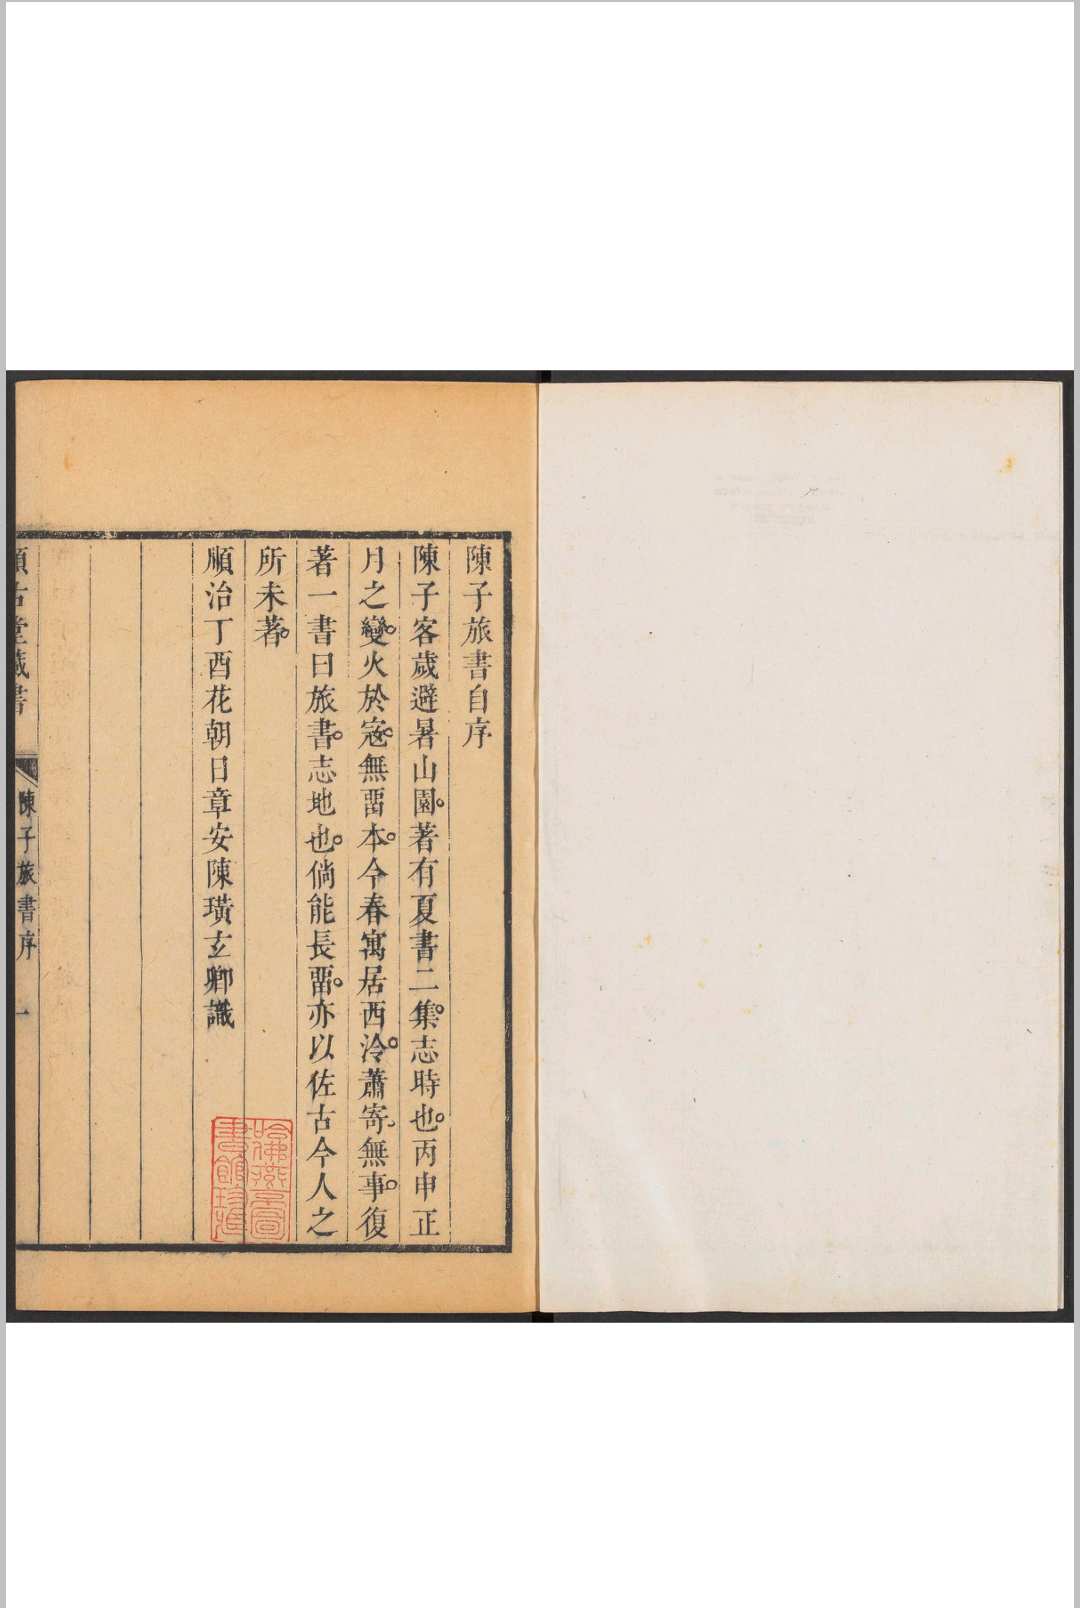 陳子旅書自序
陳子客歲避暑山園。著有夏書二集。志時也。丙申正
月之變。火於寇。無畱本。今春寓居西泠。蕭寄無事。復
著一書曰旅書。志地也。倘能長畱。亦以佐古今人之
所未著。
順治丁酉花朝日章安陳璜玄卿識
哈佛燕京圖
書館珍藏
賴古堂藏書
陳子旅書序
一